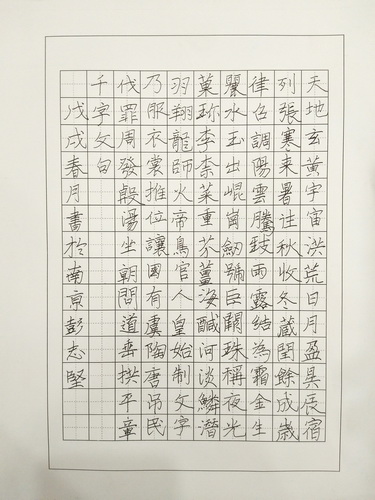 天地玄黃宇宙洪荒日月盈昃辰宿
列張寒来暑往秋收冬蔵閏餘成歲
律召調陽雲騰致雨露結為霜金生
麗水玉出崐崗劒號巨闕珠稱夜光
菓珎李柰菜重芥薑海鹹河淡鱗潛
羽翔龍師火帝鳥官人皇始制文字
乃服衣裳推位讓國有虞陶唐吊民
伐罪周發殷湯坐朝問道垂拱平章
千字文句
戊戌春月書於南京彭志堅